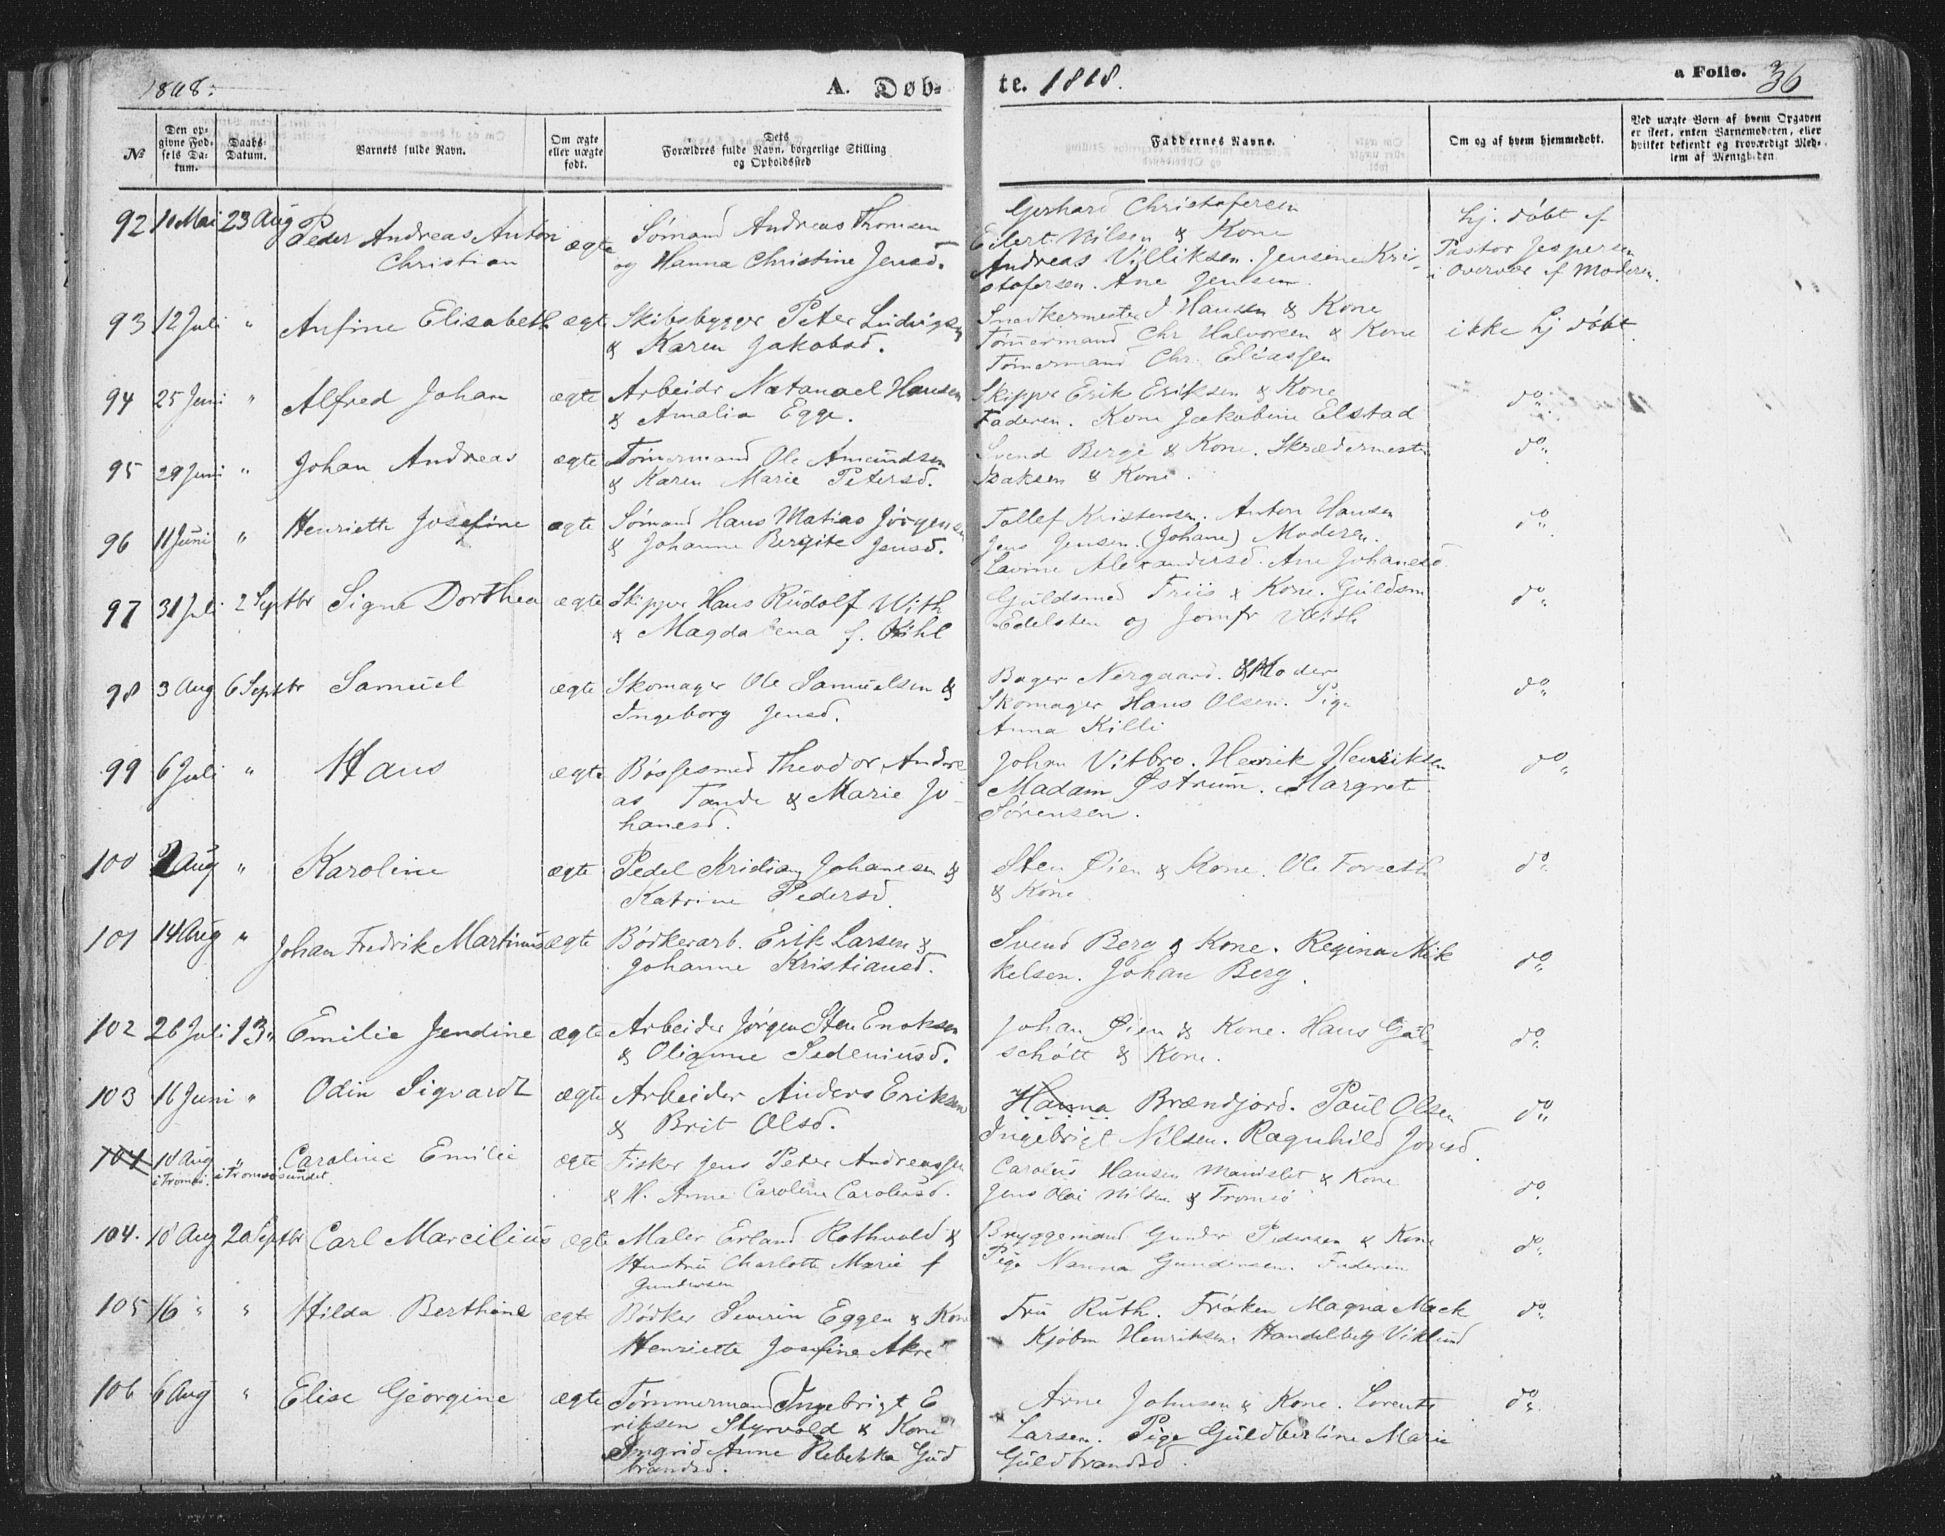 1868.
A. Døb-
te. 1868.
a Folio. 36
№
Den op-
givne Fød-
sels Da-
tum.
Daabs-
Datum.
Barnets fulde Navn.
Om ægte
eller uægte
født.
Dets
Forældres fulde Navn, borgerlige Stilling
og Opholdssted
Faddernes Navne.
Om og af hvem hjemmedøbt.
Ved uægte Børn af hvem Opgaven
er skeet, enten Barnemoderen, eller
hvilket bekjendt og troværdigt Med-
lem af Menigheden.
92 10 Mai 23 Aug Peder Andreas Anton
Christian
ægte
Sømand Andreas Thomsen
og Hanna Christine Jensd.
Gerhard Christofersen
Eilert Nilsen & Kone
Andreas Villiksen. Jensine Kri-
stofersen. Ane Jensen.
hj. døbt af
Pastor Jespersen
i Overvær af Moderen.
93 12 Juli " Anfine Elisabeth ægte Skibsbygger Peter Ludvigsen
& Karen Jakobsd.
Snedkermester J Hansen & Kone
Tømmermand Chr Halvorsen & Kone
Tømermand Chr. Eliassen
ikke hj døbt.
94 25 Juni " Alfred Johan ægte Arbeidr Natanael Hansen
& Amalia Egge.
Skippr Erik Eriksen & Kone
Faderen. Kone Jakobine Elstad
do.
95 29 Juni " Johan Andreas ægte Tømermand Ole Amundsen
& Karen Marie Petersd.
Svend Berge & Kone. Skrædermester
Isaksen & Kone.
do.
96 11 Juni " Henriette Josefine ægte Sømand Hans Matias Jörgensen
& Johanne Bergite Jensd.
Tollef Kristensen. Anton Hansen
Jens Jensen. (Johane) Moderen.
Lavine Alexandersd. Ane Johanesd.
do.
97 31 Juli 2 Septbr Signe Dorthea ægte Skippr Hans Rudolf With
& Magdalena f. Kihl
Guldsmed Friis & Kone. Guldsm
Edelsten og Jomfr With
do.
98 3 Aug 6 Septbr Samuel ægte Skomager Ole Samuelsen &
Ingeborg Jensd.
Bager Nergaard. & Moder
Skomager Hans Olsen. Pige
Anna Killi
do.
99 6 Juli " Hans ægte Bøssesmed Theodor Andre
as Tande & Marie Jo-
hanesd.
Johan Vitbro. Henrik Henriksen
Madam Østrum. Margret
Sørensen.
do.
100 2 Aug " Karoline ægte Pedel Kristian Johanesen &
Katrine Pedersd.
Sten Øien & Kone. Ole Forseth
& Kone
do.
101 14 Aug " Johan Fredrik Martinus ægte Bødkerarb. Erik Larsen &
Johanne Kristiansd.
Svend Berg & Kone. Regina Mik
kelsen. Johan Berg.
do.
102 26 Juli 13 " Emilie Jendine ægte Arbeider Jørgen Sten Enoksen
& Olianne Sedeniusd.
Johan Øien & Kone. Hans Gul-
schøtt & Kone.
do.
103 16 Juni " Odin Sigvardt ægte Arbeider Anders Eriksen
& Brit Olsd.
Hanna Brændjord. Paul Olsen
Ingebrigt Nilsen. Ragnhild Jonsd.
do.
104 18 Aug " Caroline Emilie
i Tromsø. i Tromsøsundet.
ægte Fisker Jens Peter Andreassen
& H. Anne Caroline Carolusd.
Carolus Hansen & Kone
Jens Olai Nilsen & Tromsø
do.
104. 18 Aug 20 Septbr Carl Marcilius ægte Maler Erland Rothvold &
Hustru Charlotte Marie f
Gundersen
Bryggemand Gunder Pedersen & Kone
Pige Nanna Gundersen. Faderen
do.
105 16 " " Hilda Berthine ægte Bødker Severin Eggen & Kone
Henriette Josefine Akre
Fru Ruth. Frøken Magna Mack
Kjøbm Henriksen. Handelsbetj Viklund
do.
106 6 Aug " Elise Georgine ægte Tømmermand Ingebrigt E
riksen Styrvold & Kone
Ingrid Anne Rebekka Gud
brandsd.
Arne Johnsen & Kone. Lorents
Larsen. Pige Guldbertine Marie
Guldbrandsd.
do.